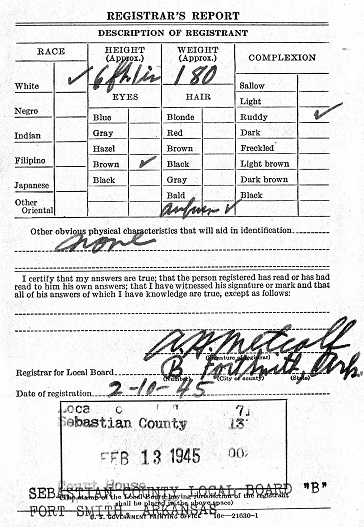 REGISTRAR'S REPORT
DESCRIPTION OF REGISTRANT
RACE
HEIGHT (Approx.)
WEIGHT (Approx.)
COMPLEXION
White ✓
6 ft. 1 in
180
Sallow
EYES
HAIR
Light
Negro
Blue
Blonde
Ruddy ✓
Indian
Gray
Red
Dark
Hazel
Brown
Freckled
Filipino
Brown ✓
Black
Light brown
Japanese
Black
Gray
Dark brown
Other Oriental
Bald
Black
auburn ✓
Other obvious physical characteristics that will aid in identification
none
I certify that my answers are true; that the person registered has read or has had
read to him his own answers; that I have witnessed his signature or mark and that
all of his answers of which I have knowledge are true, except as follows:
A. H. Metcalf
(Signature of registrar)
Registrar for Local Board B Fort Smith, Ark.
(Number) (City or county) (State)
Date of registration 2-10-45
Sebastian County 13
FEB 13 1945
Court House
SEBASTIAN COUNTY LOCAL BOARD "B"
(The stamp of the Local Board having jurisdiction of the registrant
shall be placed in the above space)
FORT SMITH, ARKANSAS
U. S. GOVERNMENT PRINTING OFFICE 16c—21630-1